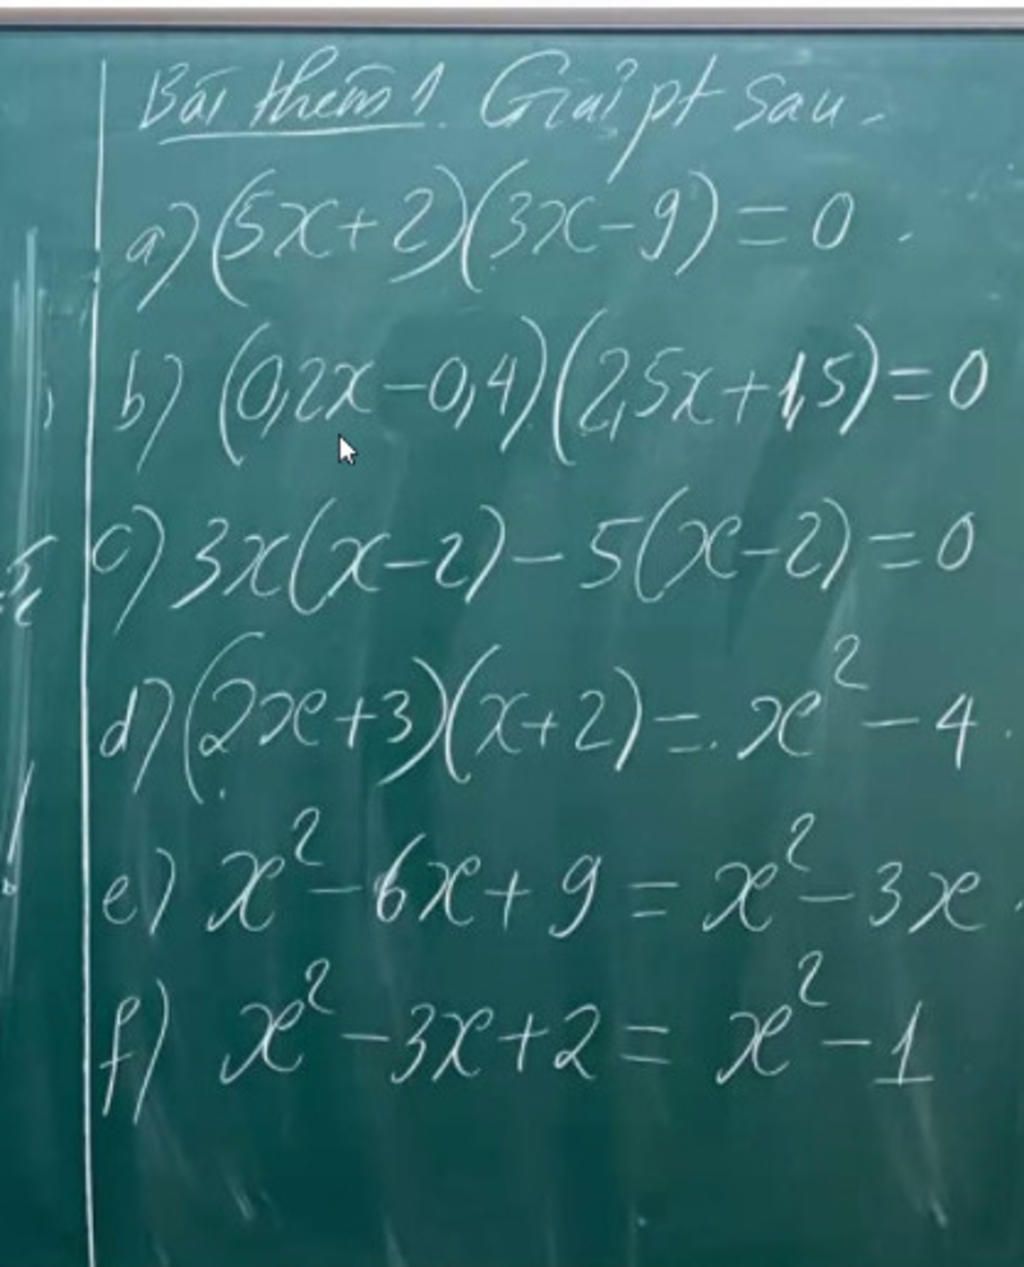 Bài thêm 1. Giải pt sau.
a) (5x+2)(3x-9) = 0.
b) (0,2x-0,4)(2,5x+1,5) = 0
c) 3x(x-2) - 5(x-2) = 0
d) (2x+3)(x+2) = x² - 4.
e) x² - 6x + 9 = x² - 3x.
f) x² - 3x + 2 = x² - 1